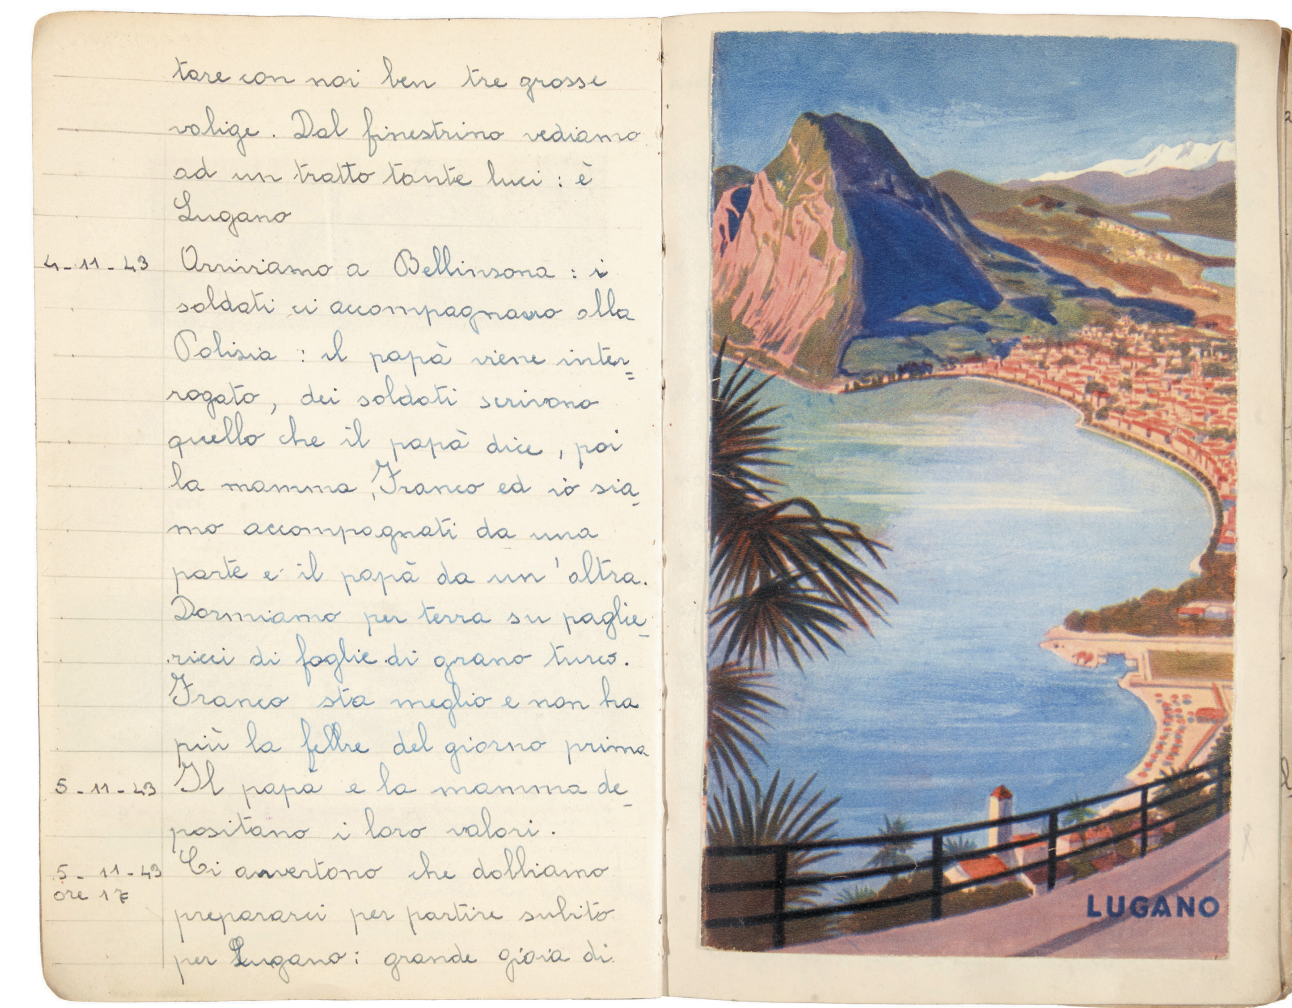 tare con noi ben tre grosse
valige. Dal finestrino vediamo
ad un tratto tante luci : è
Lugano
4-11-43 Arriviamo a Bellinsona : i
soldati ci accompagnano alla
Polisia : il papà viene inter=
rogato, dei soldati scrivono
quello che il papà dice, poi
la mamma, Franco ed io sia_
mo accompagnati da una
parte e il papà da un'altra.
Dormiamo per terra su paglie_
ricci di foglie di grano turco.
Franco sta meglio e non ha
più la febbre del giorno prima
5-11-43 Il papà e la mamma de_
positano i loro valori.
5-11-43 Ci avvertono che dobbiamo
ore 17
prepararci per partire subito
per Lugano : grande gioia di
LUGANO